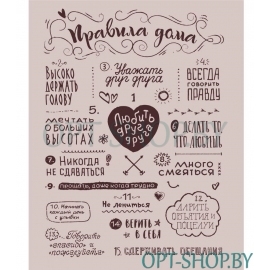 Правила дома
2. Высоко держать голову
3. Уважать друг друга
4. Всегда говорить правду
1
Любить друг друга
5. мечтать о больших высотах
6. делать то, что любишь
7. Никогда не сдаваться
8. много смеяться
9. прощать, даже когда трудно
10. Начинать каждый день с улыбки
11 Не ленится
12. дарить объятия и поцелуи
13. Говорить "спасибо" и "пожалуйста"
14 верить в себя
15. сдерживать обещания
OPT-SHOP.BY